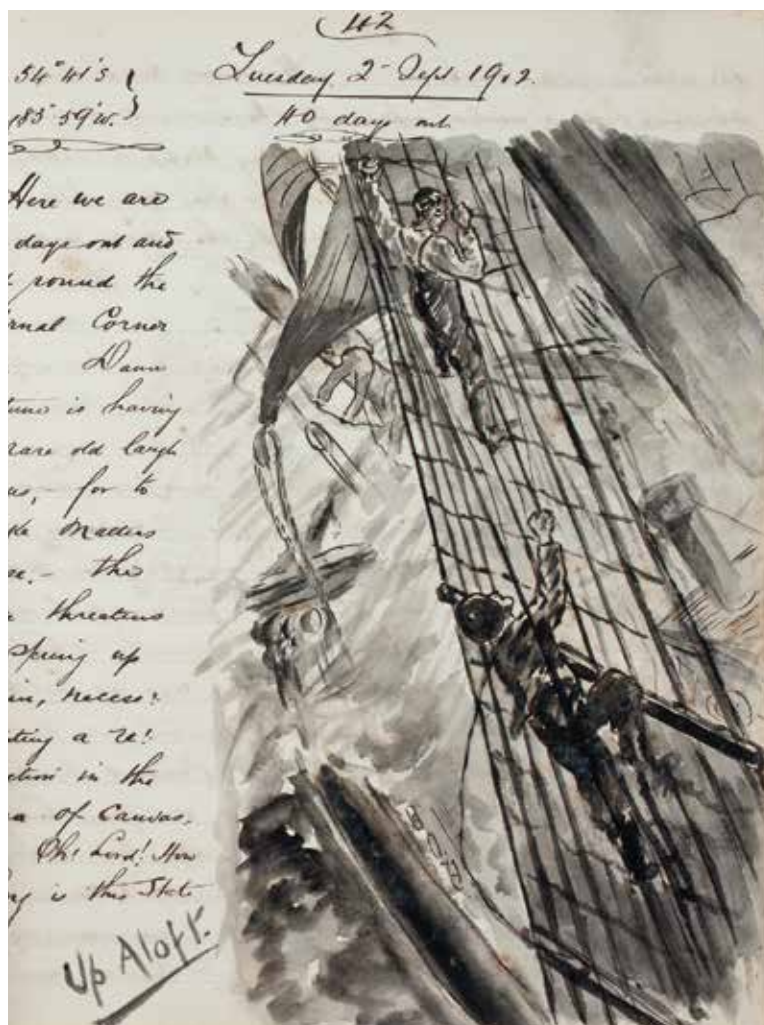 42
Tuesday 2 Sept. 1902.
40 days out
54° 41's
83° 59'w.
Here we are
days out and
round the
rnal Corner
Damn
tune is having
rare old laugh
us, for to
ke matters
the
threatens
spring up
in, necess:
ting a re:
ction in the
a of Canvas.
Oh! Lord! How
ng is this State
Up Aloft.